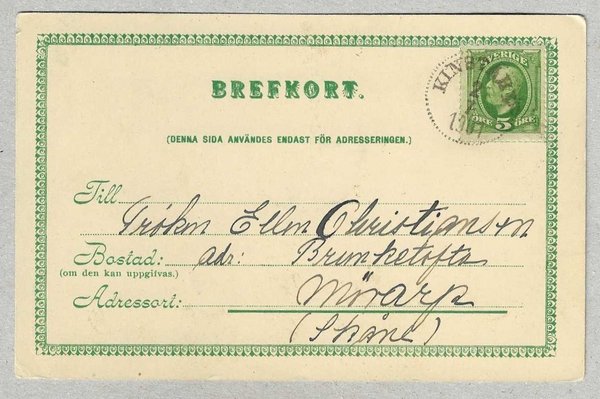 BREFKORT.
SVERIGE
ÖRE 5 ÖRE
(DENNA SIDA ANVÄNDES ENDAST FÖR ADRESSERINGEN.)
Till Fröken Ellen Christiansen
Bostad: adr: Brunketofta
(om den kan uppgifvas.)
Adressort: Mörarp
(Skåne)